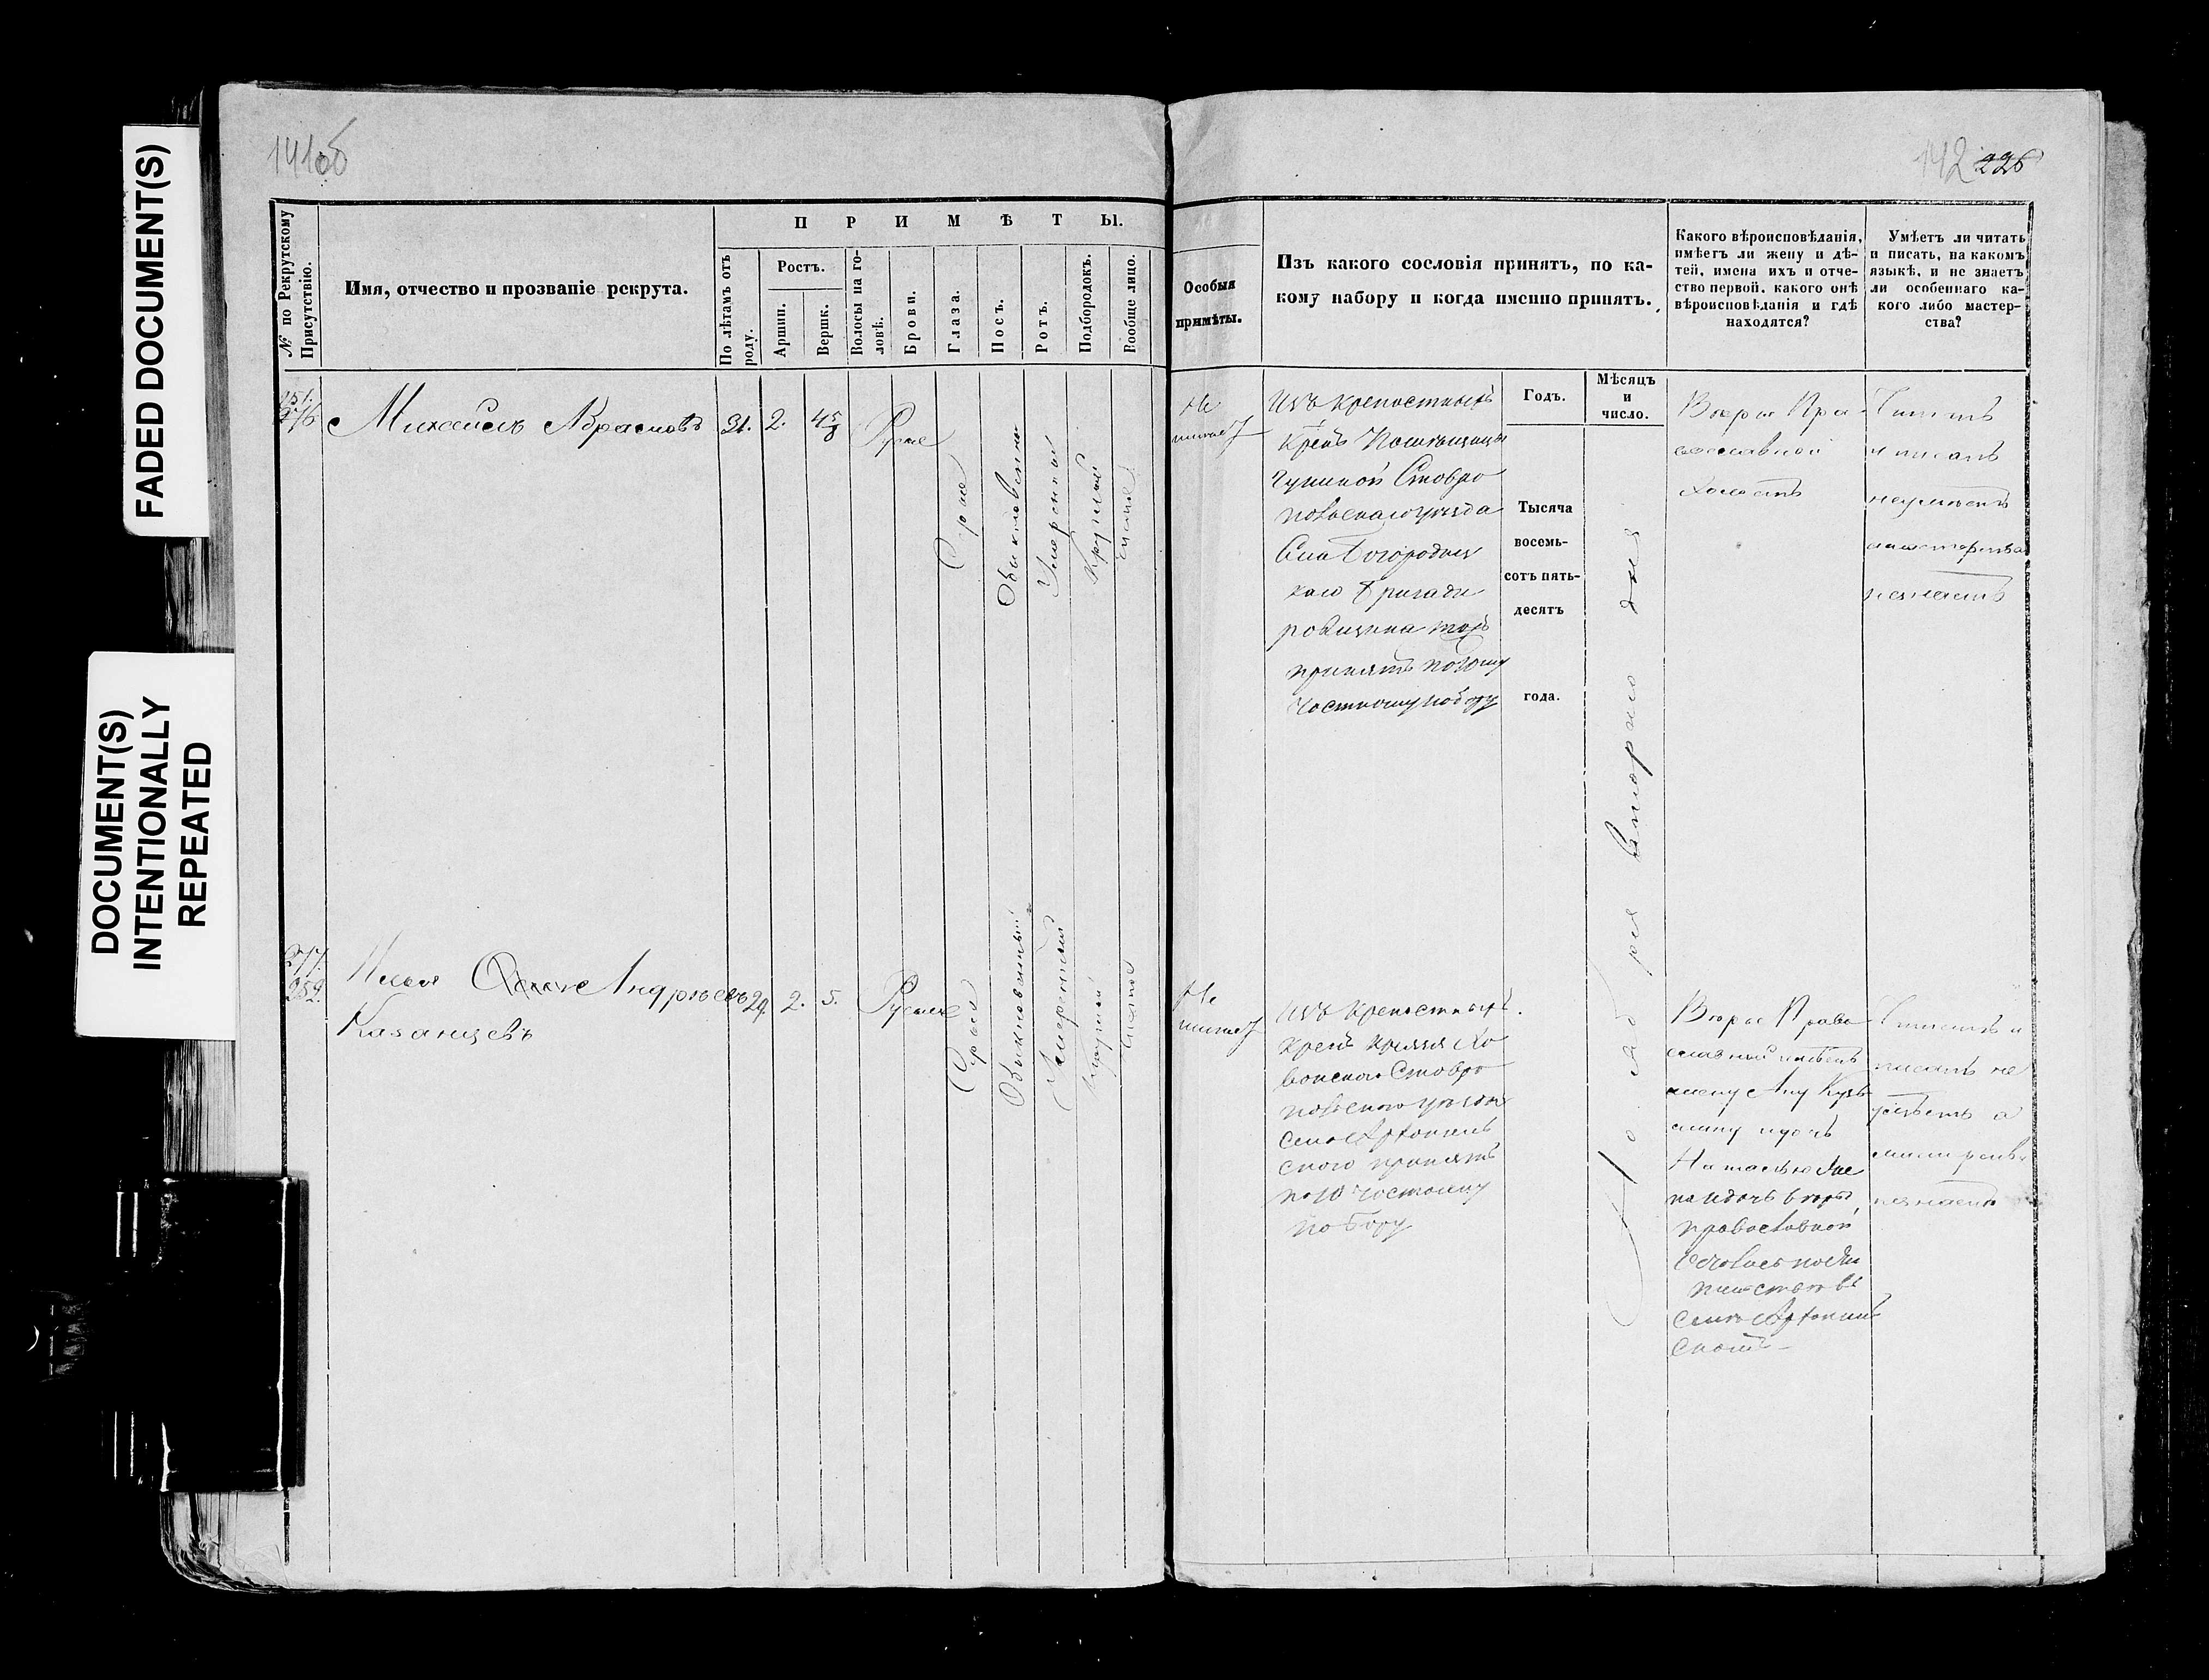 FADED DOCUMENT(S)
DOCUMENT(S)
INTENTIONALLY
REPEATED
141об
142 226
№ по Рекрутскому
Присутствію.
Имя, отчество и прозваніе рекрута.
ПРИМѢТЫ.
По лѣтамъ отъ
роду.
Ростъ.
Аршин.
Вершк.
Волосы на го-
ловѣ.
Брови.
Глаза.
Носъ.
Ротъ.
Подбородокъ.
Вообще лицо.
Особыя
примѣты.
Изъ какого сословія принятъ, по ка-
кому набору и когда именно принятъ.
Какого вѣроисповѣданія,
имѣетъ ли жену и дѣ-
тей, имена ихъ и отче-
ство первой, какого онѣ
вѣроисповѣданія и гдѣ
находятся?
Умѣетъ ли читать
и писать, на какомъ
языкѣ, и не знаетъ
ли особеннаго ка-
кого либо мастер-
ства?
Годъ.
Мѣсяцъ
и
число.
Тысяча
восемь-
сотъ пять-
десятъ
года.
251.
276
Михаилъ Абрамовъ
31.
2.
4 5/8
Русые
Серые
Обыкновенный
Умеренный
Круглый
Чистое
Не
имеет
Изъ крепостныхъ
Крестъ Помещицы
Ставро
польскаго уезда
Села Богородиц
каго Бригади
ровщина тожъ
принятъ по 10му
частному набору
Ноября втораго дня
Веры Пра
вославной
холостъ
Читать
и писать
неумеетъ
мастерства
незнаетъ
277.
252.
Илья Андреевъ
Казанцевъ
29.
2.
5.
Русые
Серые
Обыкновенный
Умеренный
Круглый
Чистое
Не
имеет
Изъ крепостныхъ
Крестъ князя Хо
ванскаго Ставро
польскаго уезда
села
скаго принятъ
по 10 частному
набору
Веры Право
славной имеетъ
жену Анну Кузь
мину и дочь
Наталью
на и дочь веры
православной
Читать и
писать не
умеетъ а
мастерства
незнаетъ